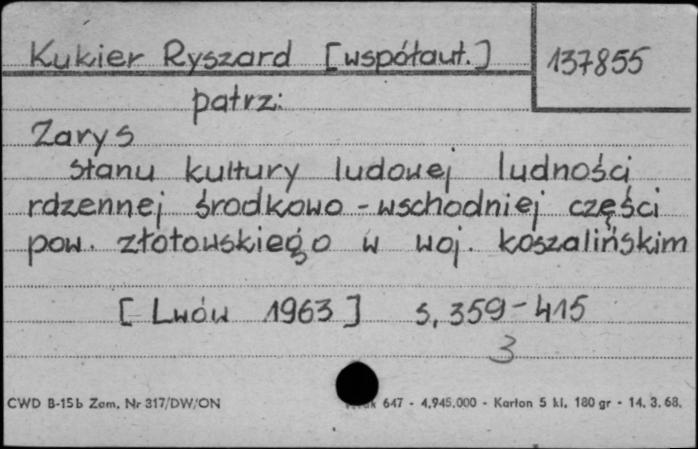 Kukier Ryszard [współaut.]
137855
patrz:
Zarys
stanu kultury ludowej ludności
rdzennej środkowo-wschodniej części
pow. złotowskiego w woj. koszalińskim
[Lwów 1963] s. 359-415
3
CWD B-15b Zam. Nr 317/DW/ON
647 - 4.945.000 - Karton 5 kl. 180 gr - 14. 3. 68.